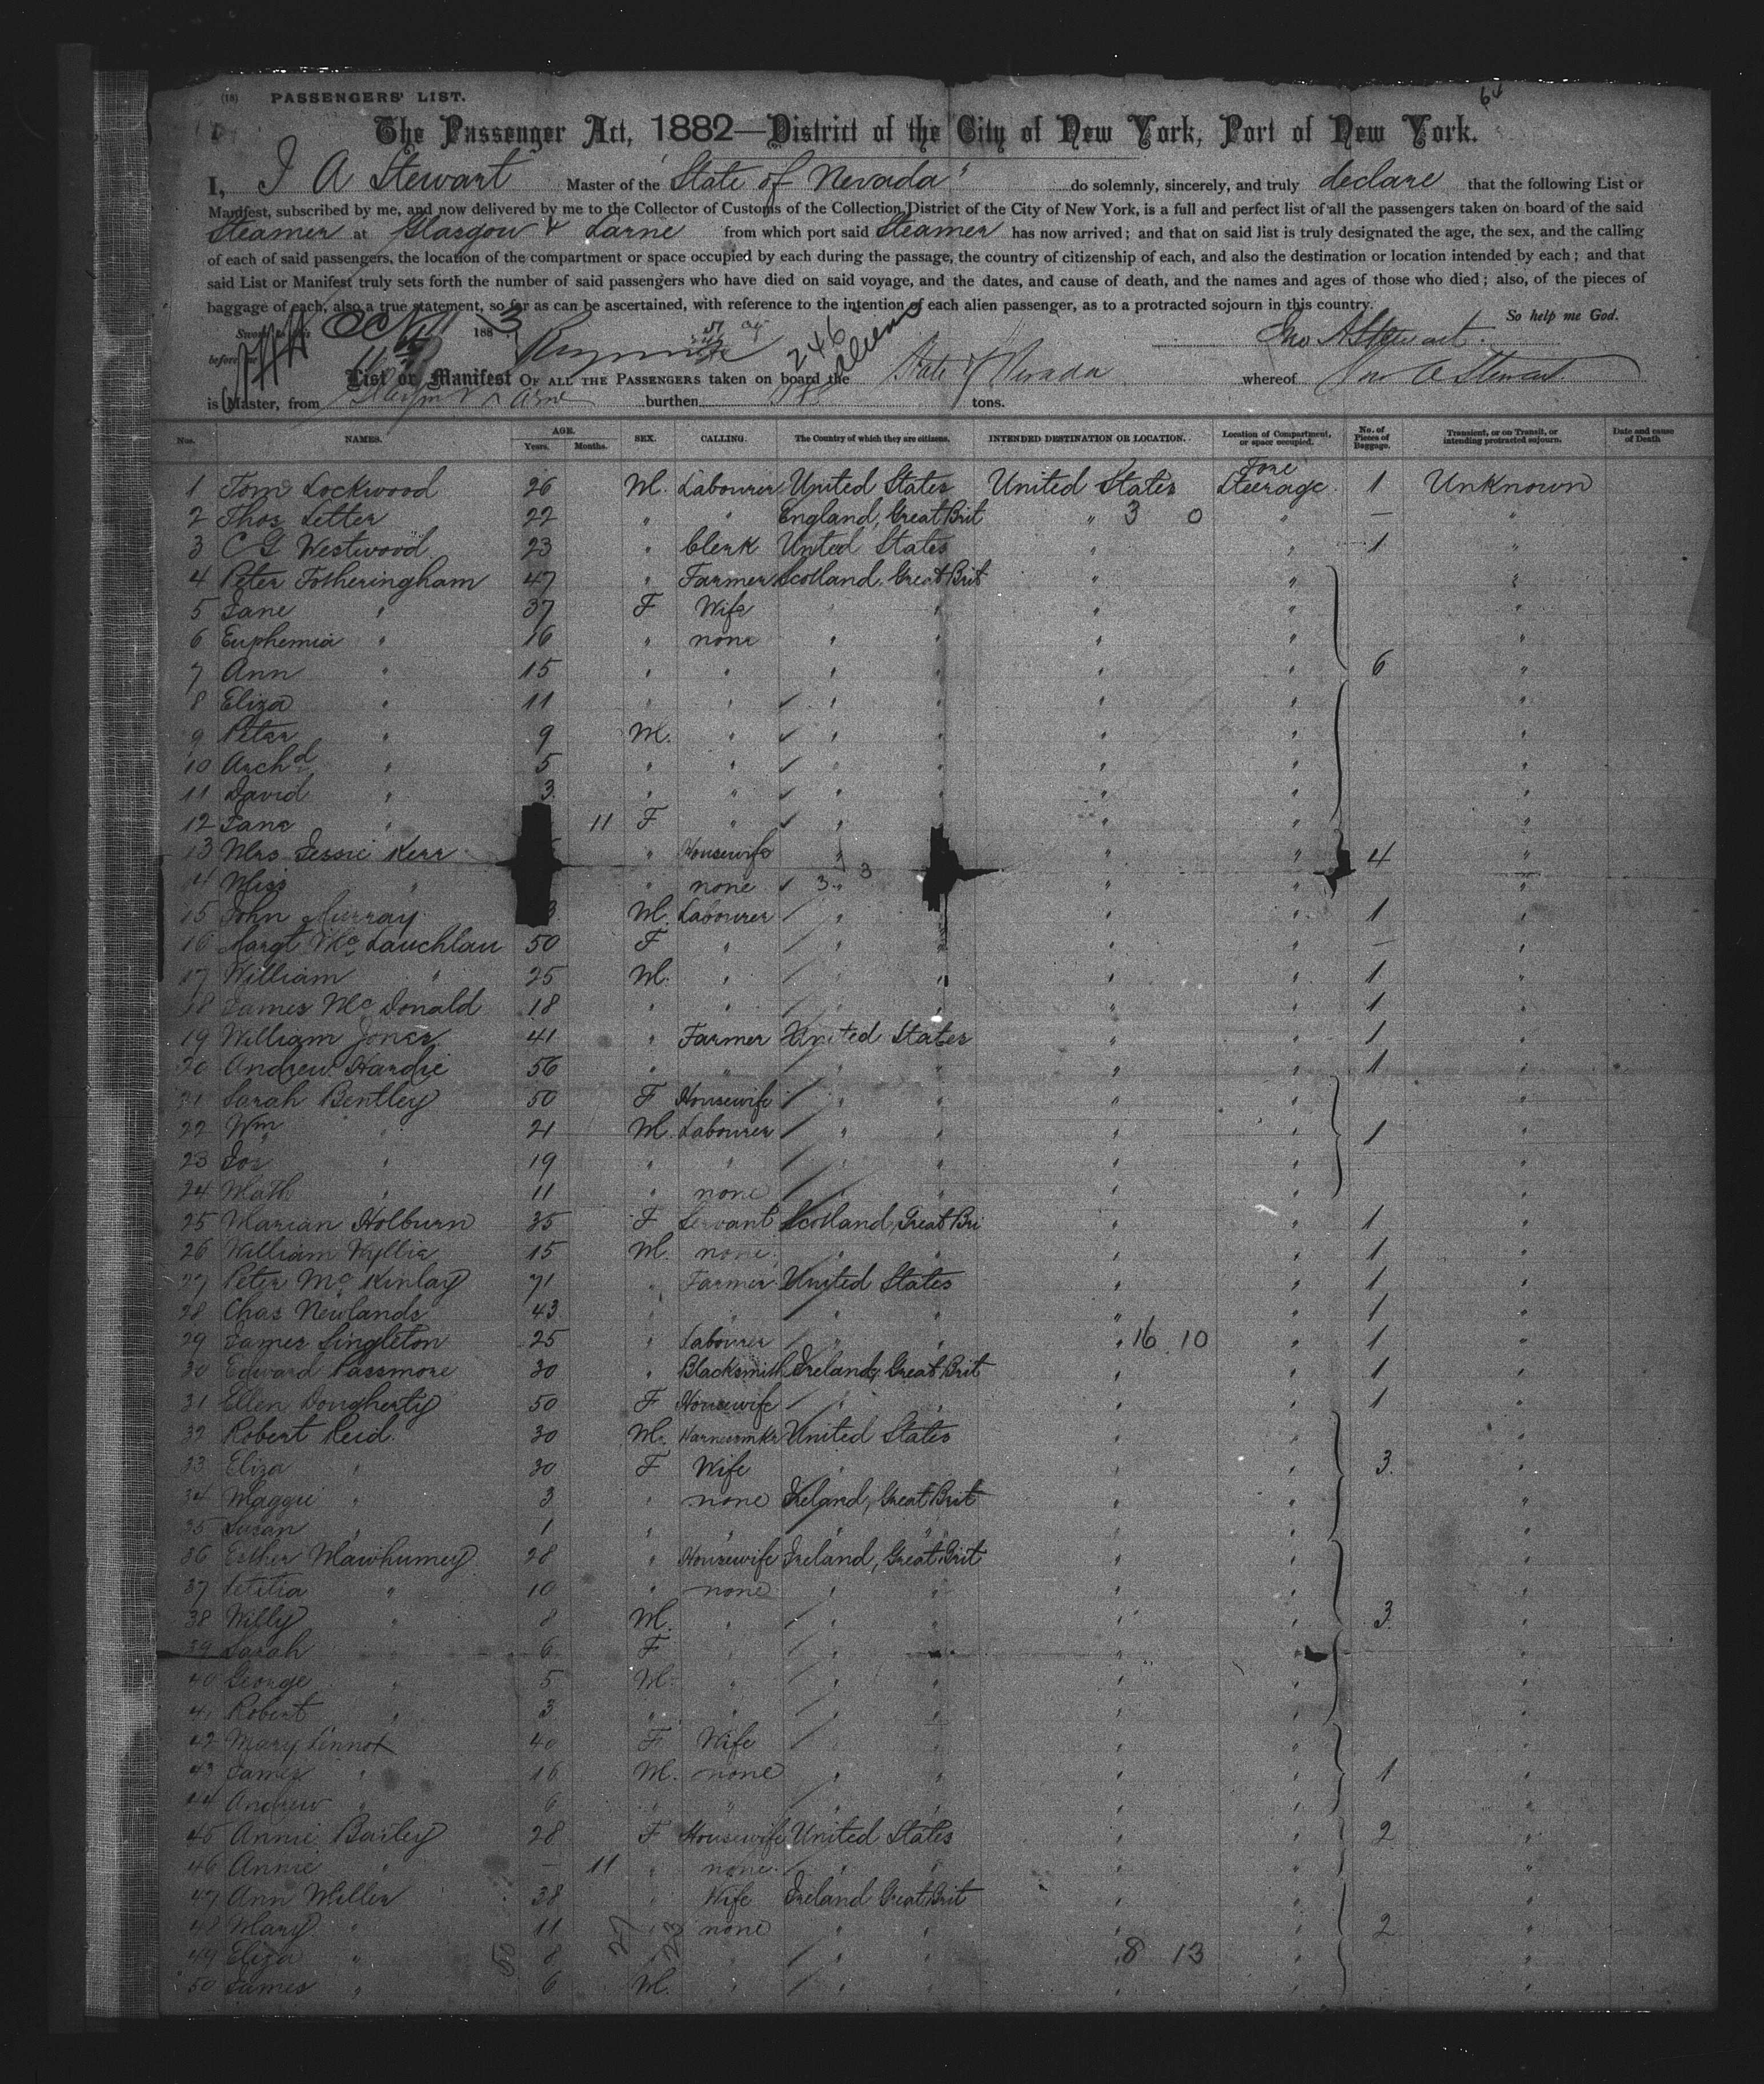 (18) PASSENGERS' LIST.
64
The Passenger Act, 1882—District of the City of New York, Port of New York.
I, J A Stewart Master of the "State of Nevada" do solemnly, sincerely, and truly declare that the following List or
Manifest, subscribed by me, and now delivered by me to the Collector of Customs of the Collection District of the City of New York, is a full and perfect list of all the passengers taken on board of the said
Steamer at Glasgow & Larne from which port said Steamer has now arrived; and that on said list is truly designated the age, the sex, and the calling
of each of said passengers, the location of the compartment or space occupied by each during the passage, the country of citizenship of each, and also the destination or location intended by each; and that
said List or Manifest truly sets forth the number of said passengers who have died on said voyage, and the dates, and cause of death, and the names and ages of those who died; also, of the pieces of
baggage of each, also a true statement, so far as can be ascertained, with reference to the intention of each alien passenger, as to a protracted sojourn in this country.
So help me God.
188 3
Jno A Stewart
before
246 Aliens
List or Manifest OF ALL THE PASSENGERS taken on board the State of Nevada whereof Jno A Stewart
is Master, from Glasgow & Larne burthen tons.
Nos. NAMES. AGE. Years. Months. SEX. CALLING. The Country of which they are citizens. INTENDED DESTINATION OR LOCATION. Location of Compartment, or space occupied. No. of Pieces of Baggage. Transient, or on Transit, or intending protracted sojourn. Date and cause of Death
1 Tom Lockwood 26 M. Labourer United States United States Fore Steerage 1 Unknown
2 Thos Letter 22 " " England, Great Brit " 3 0 " — "
3 C G Westwood 23 " Clerk United States " " 1 "
4 Peter Fotheringham 47 " Farmer Scotland, Great Brit " " "
5 Jane " 37 F Wife " " " " "
6 Euphemia " 16 " none " " " " "
7 Ann " 15 " " " " " " 6 "
8 Eliza " 11 " " " " " " "
9 Peter " 9 M. " " " " " "
10 Archd " 5 " " " " " " "
11 David " 3 " " " " " " "
12 Jane " 11 F " " " " "
13 Mrs Jessie Kerr " Housewife " " " 4 "
14 Miss " " none 3 " 3 " " "
15 John Murray 3 M. Labourer " " " 1 "
16 Margt McLauchlan 50 F " " " " " — "
17 William " 25 M. " " " " " 1 "
18 James McDonald 18 " " " " " " 1 "
19 William Jones 41 " Farmer United States " " 1 "
20 Andrew Hardie 56 " " " " " " 1 "
21 Sarah Bentley 50 F Housewife " " " " "
22 Wm " 21 M. Labourer " " " " 1 "
23 Jos " 19 " " " " " " "
24 Math " 11 " none " " " " "
25 Marian Holburn 35 F Servant Scotland, Great Bri " " 1 "
26 William Wyllie 15 M. none " " " " 1 "
27 Peter McKinlay 71 " Farmer United States " " 1 "
28 Chas Newlands 43 " " " " " " 1 "
29 James Singleton 25 " Labourer " " " 16 10 " 1 "
30 Edward Passmore 30 " Blacksmith Ireland, Great Brit " " 1 "
31 Ellen Dougherty 50 F Housewife " " " " 1 "
32 Robert Reid 30 M. Harnessmkr United States " " "
33 Eliza " 30 F Wife " " " 3 "
34 Maggie " 3 " none Ireland, Great Brit " " "
35 Susan " 1 " " " " " " "
36 Esther Mawhinney 28 " Housewife Ireland, Great Brit " " "
37 Letitia " 10 " none " " " " "
38 Willy " 8 M. " " " " " 3 "
39 Sarah " 6 F " " " " " "
40 George " 5 M. " " " " " "
41 Robert " 3 " " " " " " "
42 Mary Sinnot 40 F Wife " " " "
43 James " 16 M. none " " " " 1 "
44 Andrew " 6 " " " " " " "
45 Annie Bailey 28 F Housewife United States " " 2 "
46 Annie " — 11 " none " " " " "
47 Ann Miller 38 " Wife Ireland Great Brit " " "
48 Mary " 11 " none " " " " 2 "
49 Eliza " 8 " " " " " 8 13 " "
50 James " 6 M. " " " " " "